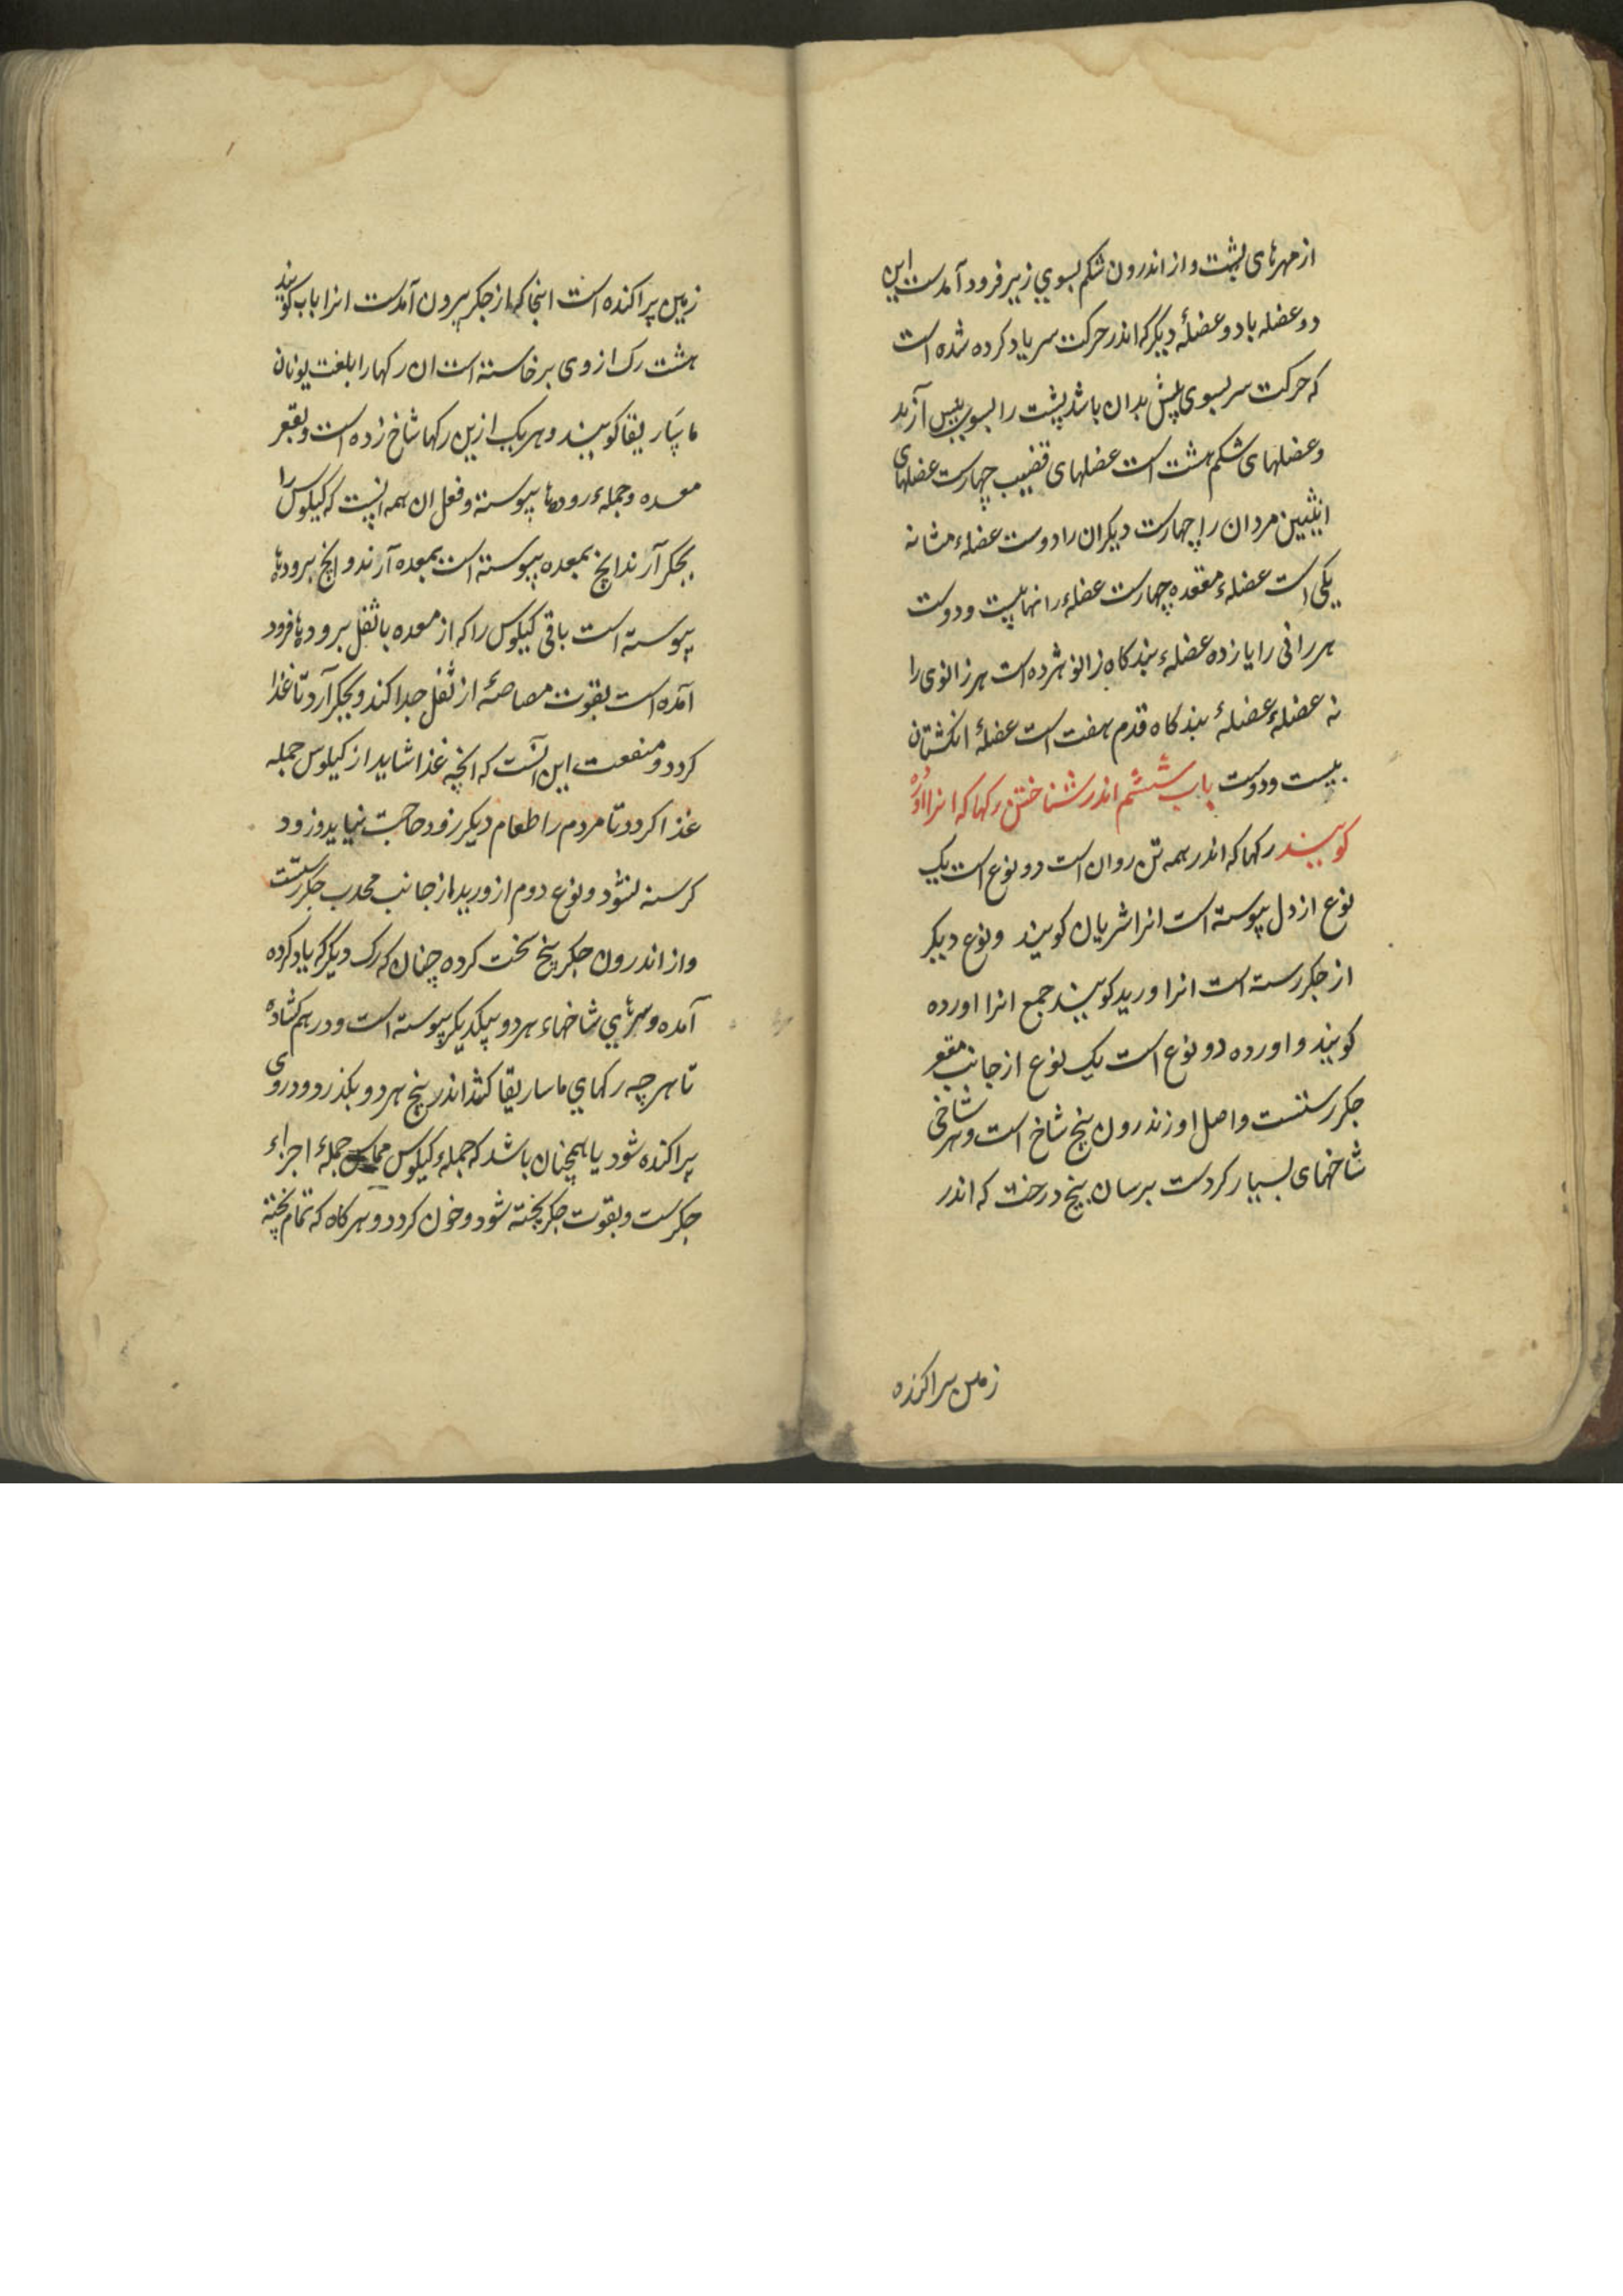 از مهرهای پشت و از اندرون شکم بسوي زیر فرود آمدست این
دو عضله با دو عضلهٔ دیگر که اندر حرکت سر یاد کرده شده است
که حرکت سر بسوی پیش بدان باشد پشت را بسوی پیس آرند
و عضلهای شکم هشت است عضلهای قضیب چهارست عضلهای
انثیین مردان را چهارست دیکران را دوست عضلهء مثانه
یکی است عضلهء مقعده چهارست عضلهء رانها بیست و دوست
هر رانی را یازده عضلهء بندکاه زانو هژده است هر زانوی را
نه عضلهء عضلهٔ بندکاه قدم هفت است عضلهٔ انکشتان
بیست و دوست باب ششم اندر شناختن رکها که انرا اورده
کویند رکها که اندر همه تن روان است دو نوع است یک
نوع از دل پیوسته است انرا شریان کویند و نوع دیکر
از جکر رسته است انرا ورید کویند جمع انرا اورده
کویند و اورده دو نوع است یک نوع از جانب مقعر
جکر رستست و اصل او زندرون پنج شاخ است و هر شاخی
شاخهای بسیار کردست برسان بیخ درخت که اندر
زمین پراکنده
زمین پراکنده است اینجا که از جکر بیرون آمدست انرا باب کویند
هشت رک از وی برخاسته است ان رکها را بلغت یونان
ماساریقا کویند و هر یک ازین رکها شاخ زده است و بقعر
معده و جملهء رودها پیوسته و فعل ان همه انست که کیلوس را
بجکر آرند انچ بمعده پیوسته است بمعده آرند و انچ برودها
پیوسته است باقی کیلوس را که از معده با ثفل برودها فرود
آمده است بقوت مصاصهٔ از ثفل جدا کند و بجکر آرد تا غذا
کردد و منفعت این آنست که انچه غذا شاید از کیلوس جمله
غذا کردد تا مردم را طعام دیکر زود حاجت نیاید و زود
کرسنه نشود و نوع دوم از وریدها از جانب محدب جکر رستست
و از اندرون جکر بیخ سخت کرده چنان که رک دیگر که یاد کرده
آمده و سرهاي شاخهاء هر دو بیکدیکر پیوسته است و در هم کشاده
تا هر چه رکهاي ماساریقا کشد اندر بیخ هر دو بکذرد و در وی
پراکنده شود یا همچنان باشد که جملهء کیلوس مماس جملهٔ اجزاء
جکرست و بقوت جکر پخته شود و خون کردد و هر کاه که تمام پخته